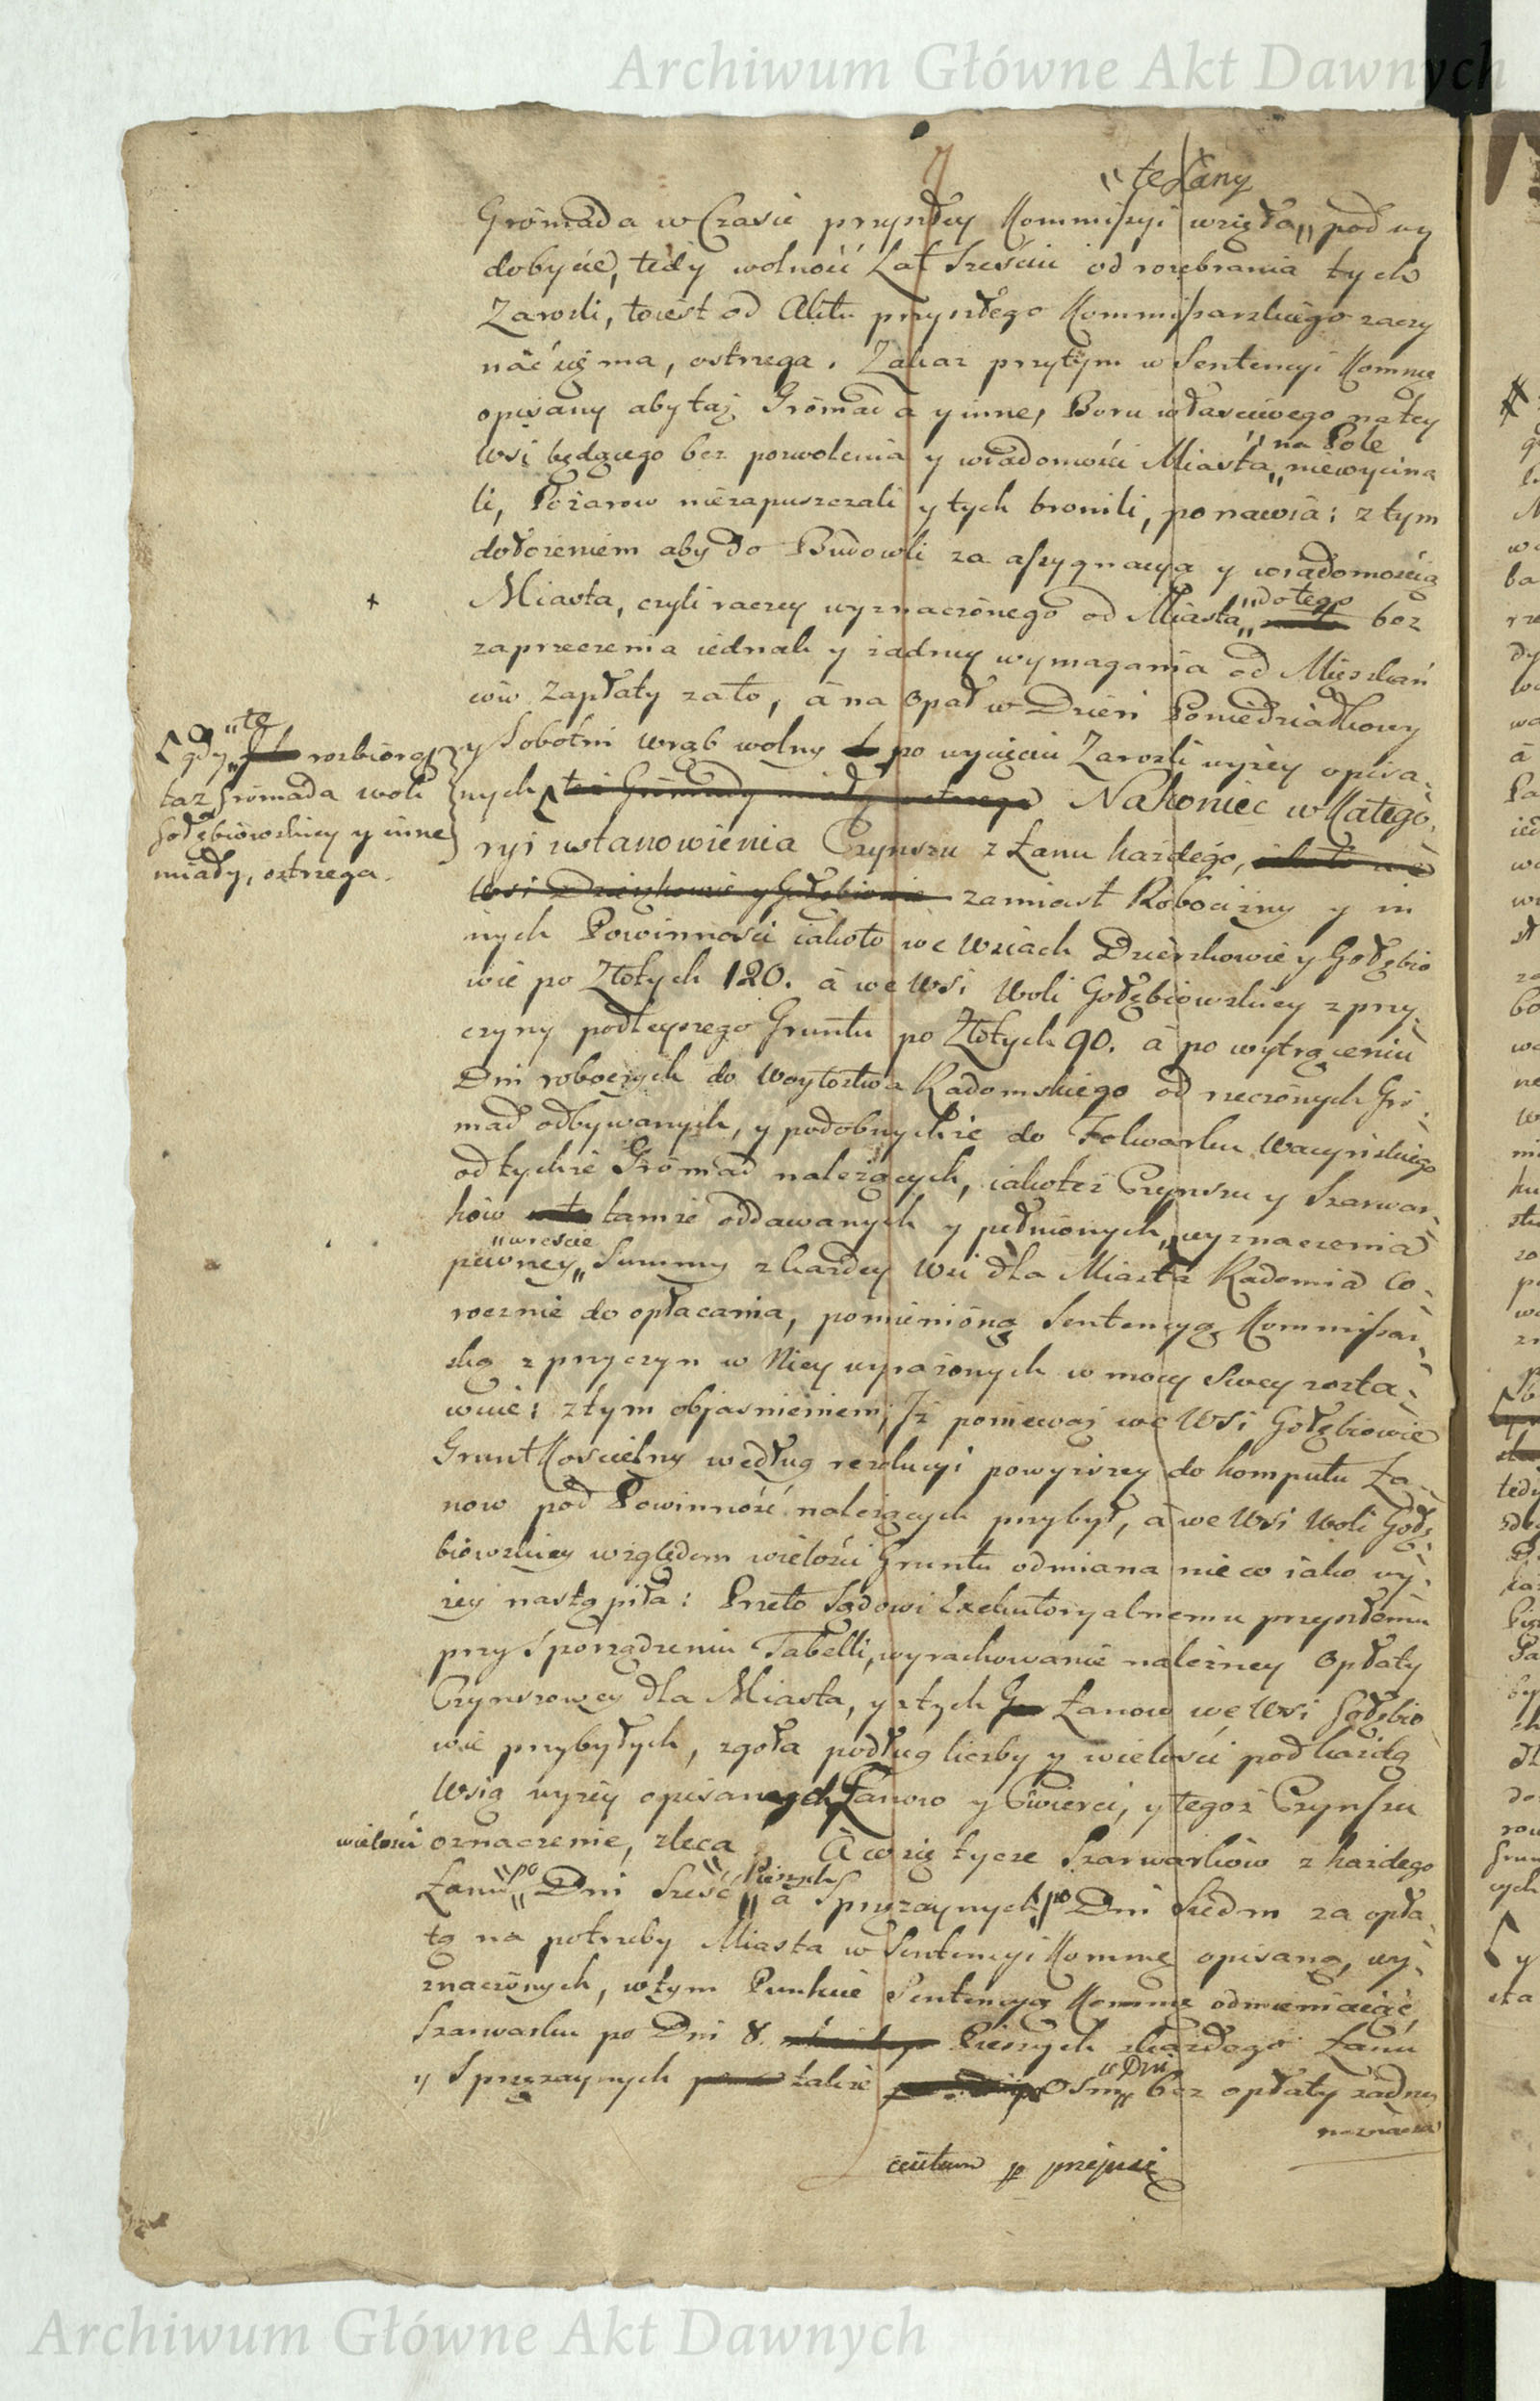 Archiwum Główne Akt Dawnych
7
te Łany
Gromada w Czasie przyszłey Kommissyi wzięła pod wy
dobycie, tedy wolność Lat Sześciu od rozebrania tych
Zarosli, toiest od Aktu przyszłego Kommissarskiego zaczy
nać się ma, ostrzega. Zakaz przytym w Sentencyi Kommey
opisany aby taż Gromada y inne, Boru własciwego na tey
Wsi będącego bez pozwolenia y wiadomości Miasta na Pole niewycina
li, Pożarow niezapuszczali y tych bronili, ponawia; z tym
dołożeniem aby do Budowli za assygnacyą y wiadomością
Miasta, czyli raczey wyznaczonego od Miasta do tego bez
zaprzeczenia iednak y żadney wymagania od Mieszkań
ców Zapłaty za to, á na Opał w Dzień Poniedziałkowy
y Sobotni wrąb wolny po wycięciu Zarosli wyżey opisa-
nych też Gromady miały ostrzega Nakoniec w Katego-
ryi ustanowienia Czynszu z Łanu każdego,
Wsi Dzierzkowie y Gołębiowie zamiast Robocizny y in
nych Powinności iakoto we Wsiach Dzierzkowie y Gołębio
wie po Złotych 120. á we Wsi Woli Gołębiowskiey z przy-
czyny podleyszego Gruntu po Złotych 90. á po wytrąceniu
Dni roboczych do Woytostwa Radomskiego od rzeczonych Gro-
mad odbywanych, y podobnychże do Folwarku Wacyńskiego
od tychże Gromad należących, iakoteż Czynszu y Szarwar-
ków tamże oddawanych y pełnionych, wyznaczenia
wreście
pewney Summy z każdey Wsi dla Miasta Radomia Co-
rocznie do opłacania, pomienioną Sentencyą Kommissar-
ską z przyczyn w Niey wyrażonych w mocy swey zosta-
wuie; z tym objasnieniem, Iż ponieważ we Wsi Gołębiowie
Grunt Koscielny według rezolucyi powyższey do komputu Ła-
now pod Powinność należących przybył, á we Wsi Woli Gołę-
biowskiey względem wielości Gruntu odmiana nieco iako wy-
żey nastąpiła: Przeto Sądowi Exekutoryalnemu przyszłemu
przy Sporządzeniu Tabelli, wyrachowanie należney Opłaty
Czynszowey dla Miasta, y z tych Łanow we Wsi Gołębio
wie przybyłych, zgoła podług liczby y wielości pod każdą
Wsią wyżey opisanych Łanow y Cwierci, y tegoż Czynszu
wielości oznaczenie, zleca. A co się tycze Szarwarków z każdego
Łanu po Dni Sześć Pieszych á Sprzężaynych po Dni Siedm za opła-
tą na potrzeby Miasta w Sentencyi Kommey opisaną, wy-
znaczonych, w tym Punkcie Sentencyą Kommą odmieniaiąc,
Szarwarku po Dni 8. Pieszych z każdego Łanu
y Sprzężaynych także Osm Dni bez opłaty żadney
naznacza
gdy te rozbiorą
taż Gromada woli
Gołębiowskiey y inne
miały, ostrzega.
Archiwum Główne Akt Dawnych